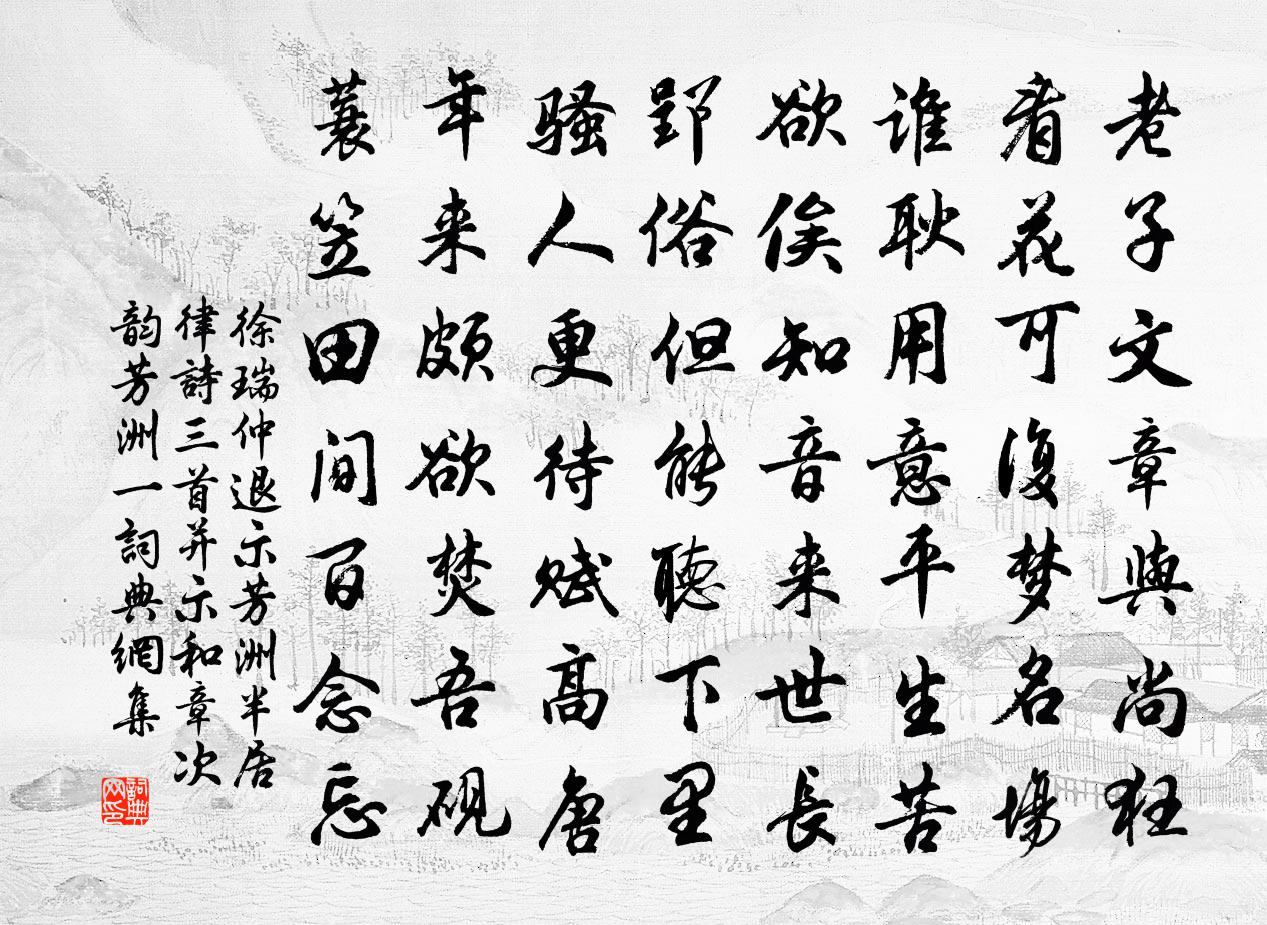 老子文章與尚狂
看花可復梦名場
誰耿用意平生苦
欲俟知音来世長
郢俗但能聽下里
騷人更待赋高唐
年来颇欲焚吾硯
蓑笠田間百念忘
徐瑞仲退示芳洲半居
律詩三首并示和章次
韵芳洲一詞典網集
詞典
网印